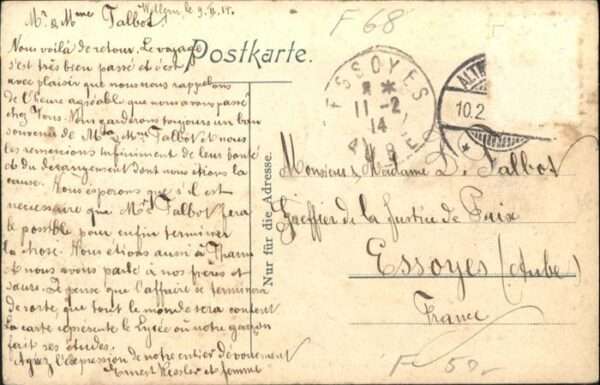 Mr & Mme Talbot
Nous voilà de retour. Le voyage
s'est très bien passé et c'est
avec plaisir que nous nous rappelons
de l'heure agréable que nous avons passé
chez Vous. Nous garderons toujours un bon
souvenir de Mr & Mme Talbot & nous
les remercions infiniment de leur bonté
et du dérangement dont nous étions la
cause. Nous esperons que s'il est
necessaire que Mr Talbot fera
le possible pour enfin terminer
la chose. Nous étions aussi à Thann
& nous avons parlé à nos frères et
sœurs. Je pense que l'affaire se terminera
de sorte, que tout le monde sera content
La carte represente le Lycée où notre garçon
fait ses études.
Agréez l'expression de notre entier dévouement
Ernest Kessler et femme
Postkarte.
Nur für die Adresse.
F 68
ESSOYES
11-2
14
AUBE
ALTK
10.2.
Monsieur, Madame L. Talbot
Greffier de la Justice de Paix
Essoyes (Aube)
France